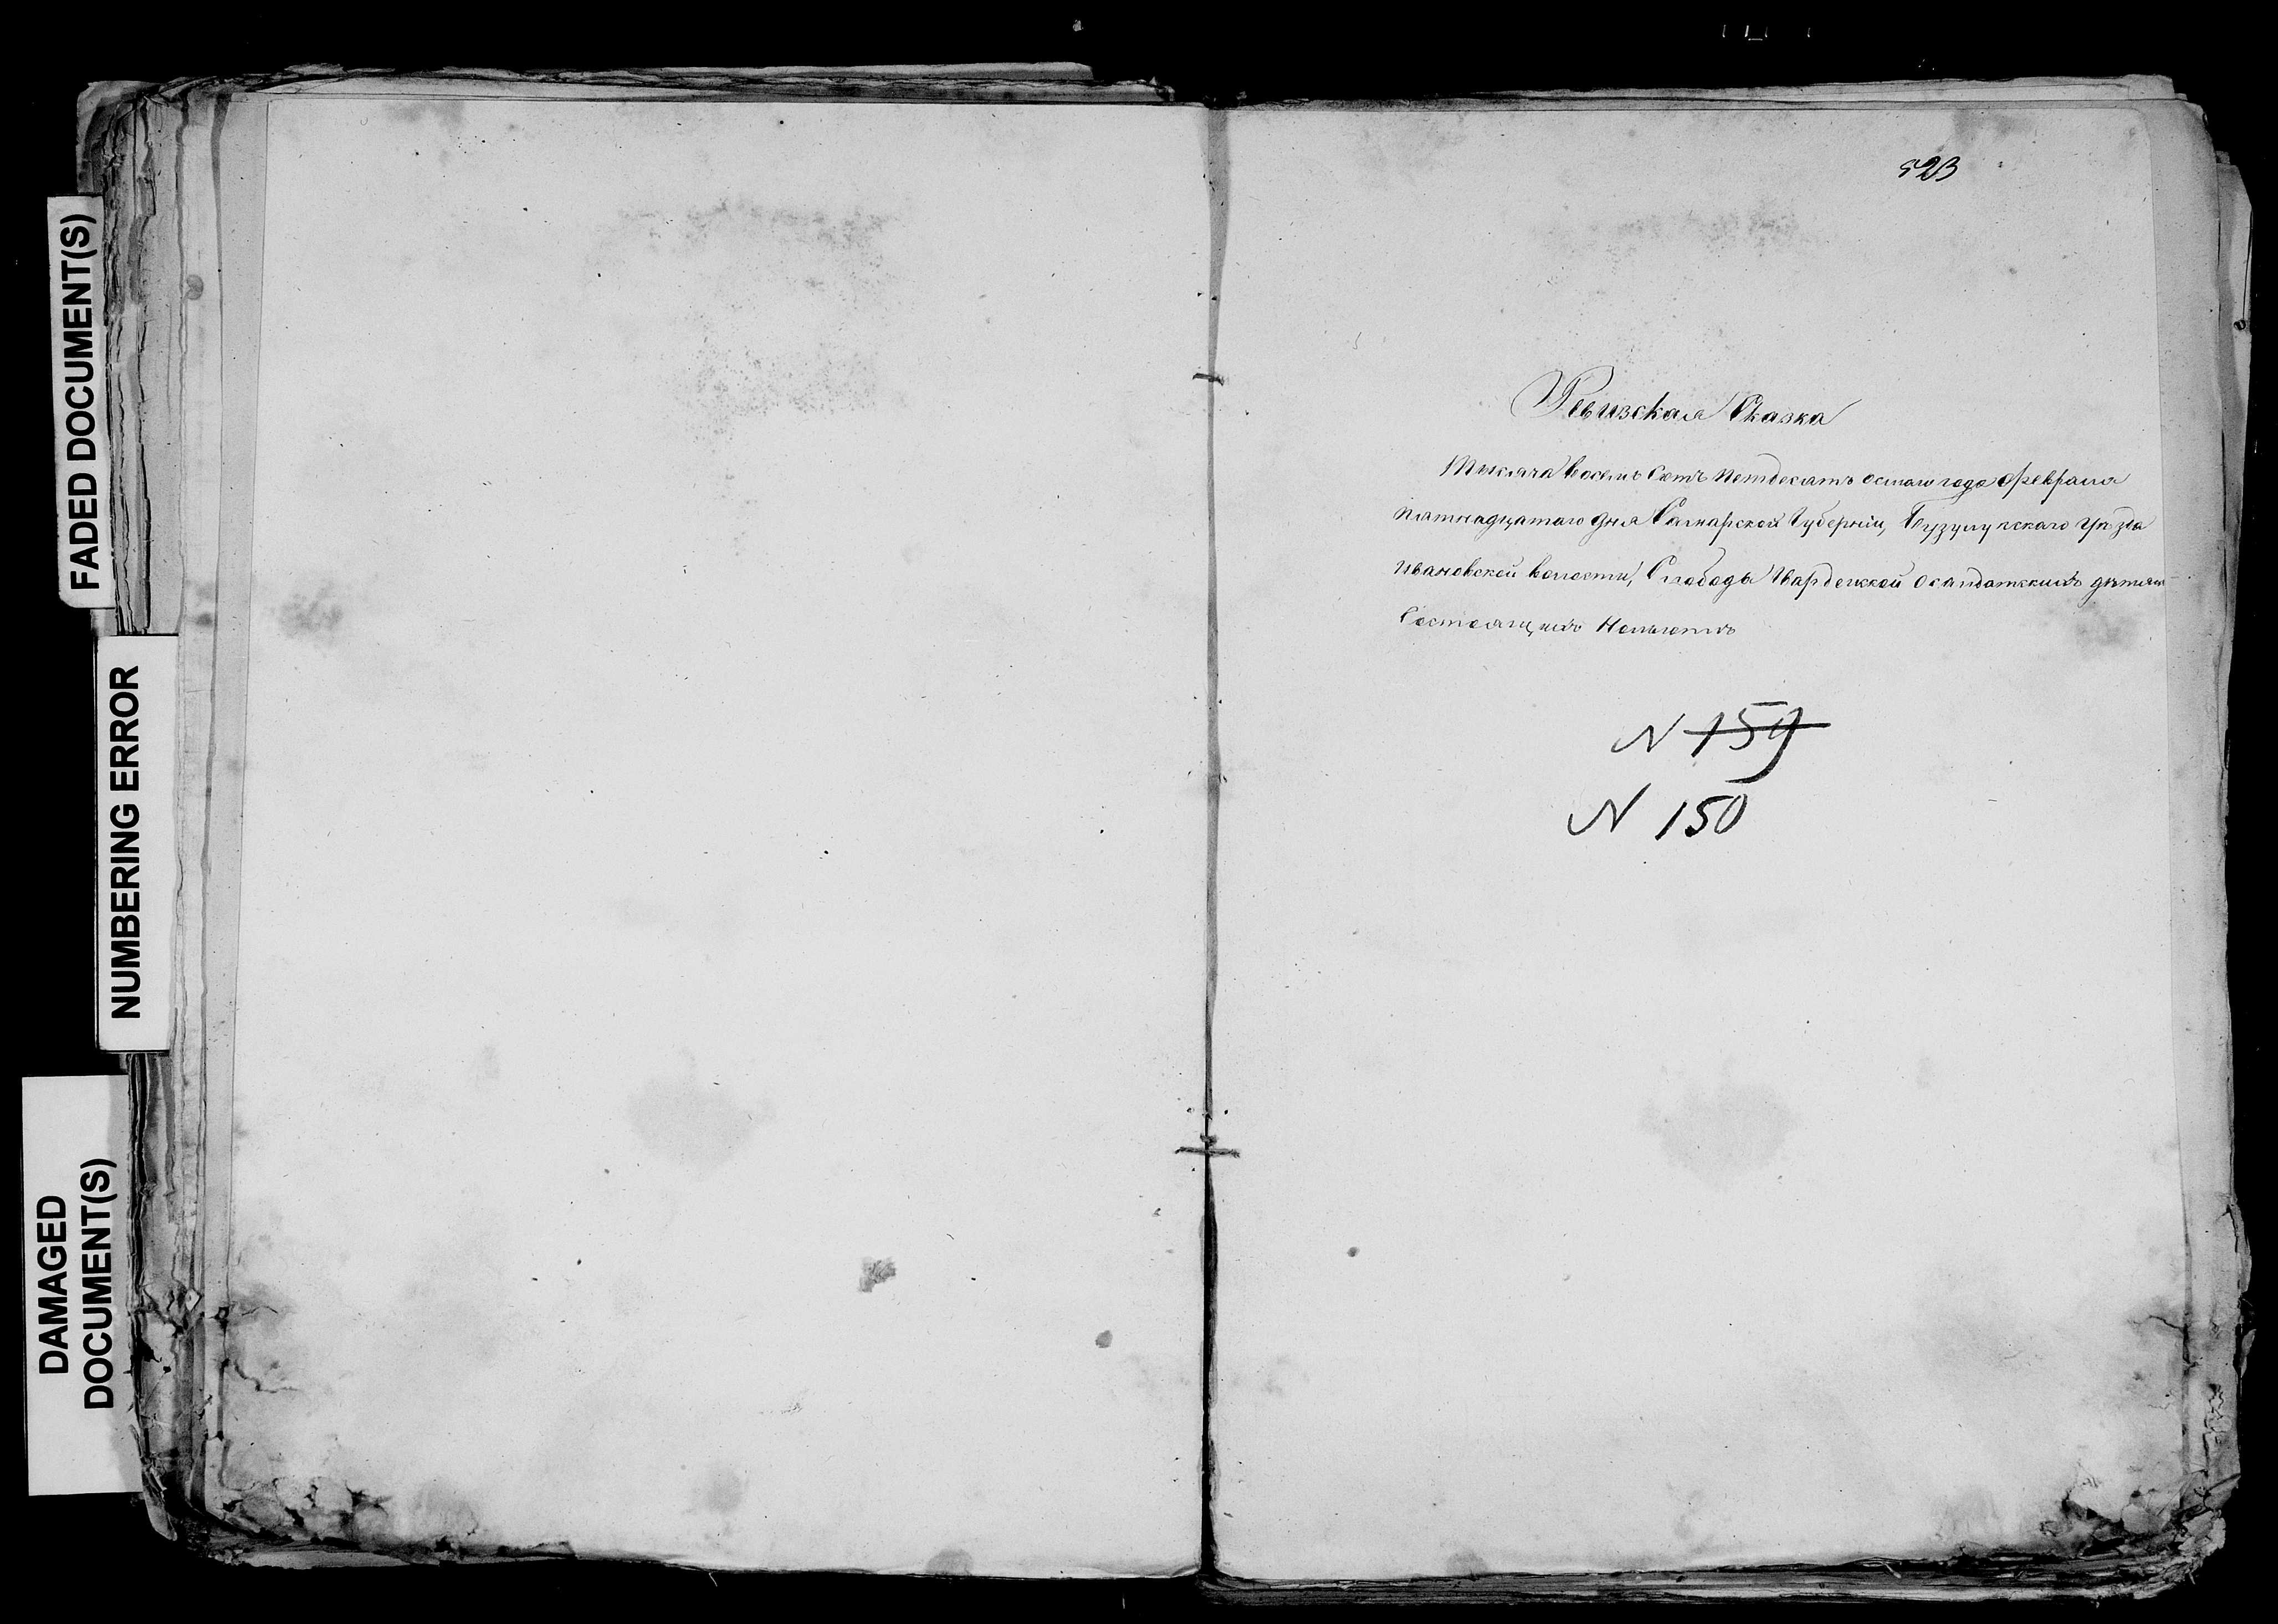 FADED DOCUMENT(S)
NUMBERING ERROR
DAMAGED
DOCUMENT(S)
523
Ревизская Сказка
Тысяча восемь Сотъ петдесатъ осмаго года Февраля
пятнадцатаго дня Самарской Губерніи, Бузулукскаго Уѣзда
Ивановской волости, Слободы Гвардейской о салдатскихъ дѣтяхъ
Состоящихъ
N 159
N 150